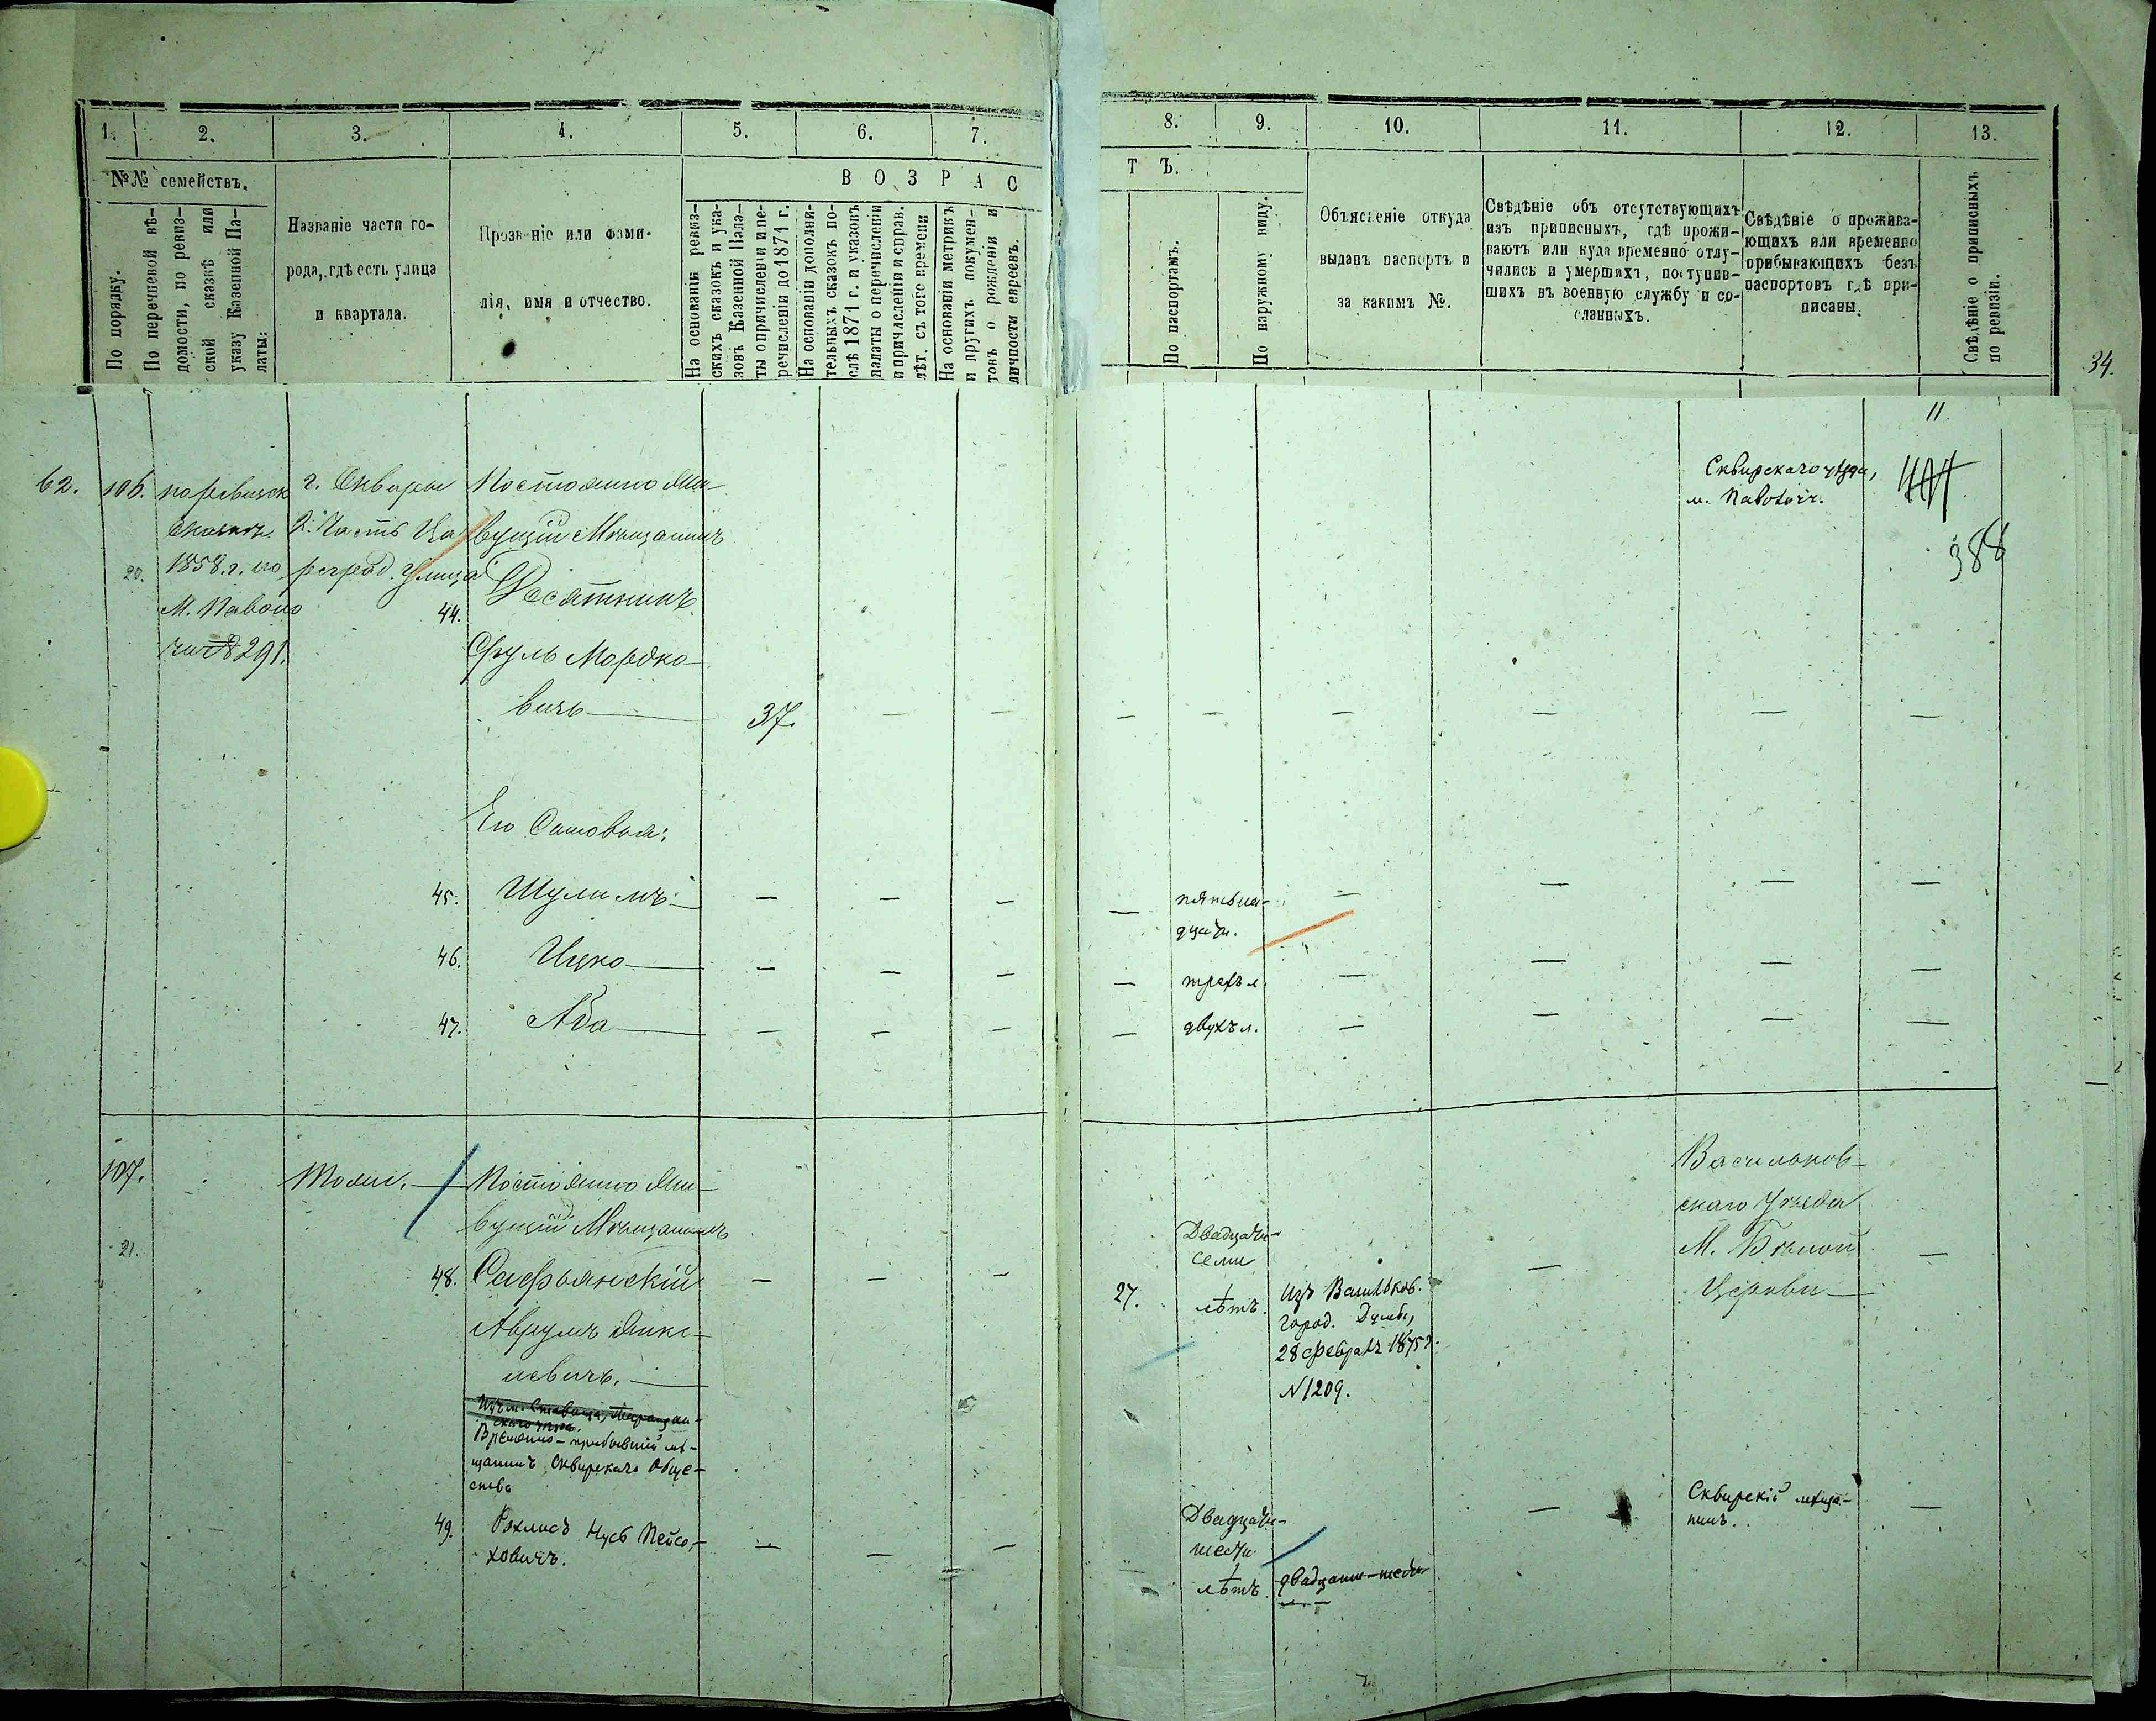 1.
2.
3.
4.
5.
6.
7.
8.
9.
10.
11.
12.
13.
№№ семействъ.
По порядку.
По перечневой вѣ-
домости, по ревиз-
ской сказкѣ или
указу Казенной Па-
латы:
Названіе части го-
рода, гдѣ есть улица
и квартала.
Прозваніе или фами-
лія, имя и отчество.
ВОЗРАС
На основаніи ревиз-
скихъ сказокъ и ука-
зовъ Казенной Пала-
ты о причисленіи и пе-
речисленіи до 1871 г.
На основаніи дополни-
тельныхъ сказокъ по-
слѣ 1871 г. и указовъ
палаты о перечисленіи
и причисленіи и справ.
лѣт. съ того времени
На основаніи метрикъ
и другихъ докумен-
товъ о рожденіи и
личности евреевъ.
ТЪ.
По паспортамъ.
По наружному виду.
Объясненіе откуда
выданъ паспортъ и
за какимъ №.
Свѣдѣніе объ отсутствующихъ
изъ приписныхъ, гдѣ прожи-
ваютъ или куда временно отлу-
чились и умершихъ, поступив-
шихъ въ военную службу и со-
сланныхъ.
Свѣдѣніе о прожива-
ющихъ или временно
прибывающихъ безъ
паспортовъ гдѣ при-
писаны.
Свѣдѣніе о приписныхъ
по ревизіи.
34.
11.
62.
106.
20.
по ревизск
сказкѣ
1858. г. по
М. Паволо
чи № 291.
г. Сквира
2. Часть За
регред. улица
Постоянно Жи-
вущій Мѣщанинъ
44.
Десятникъ
Сруль Мордко-
вичъ —
37.
— — — — — — — —
Сквирскаго уѣзда,
м. Паволочъ.
388
Его Сыновья:
45. Шулимъ —
— — — —
пятьна-
дцати.
— — — —
46. Ицко —
— — — —
трехъ л.
— — — —
47. Аба —
— — — —
двухъ л.
— — — —
107.
21.
Тоже. —
Постоянно Жи-
вущій Мѣщанинъ
48. Сафьянскій
Аврумъ Янке-
левичъ. —
— — —
27.
Двадцати-
семи
лѣтъ.
Изъ Васильков.
город. Думы,
28 февраля 1875 г.
N 1209.
—
Васильков-
скаго Уѣзда
М. Бѣлой
Церкви —
—
Временно-прибывшій мѣ-
щанинъ Сквирскаго Обще-
ства
49. Рохлисъ Нусь Пейса-
ховичъ.
— — —
Двадцати-
шести
лѣтъ.
двадцати-шести
л.
—
Сквирскій мѣща-
нинъ.
—